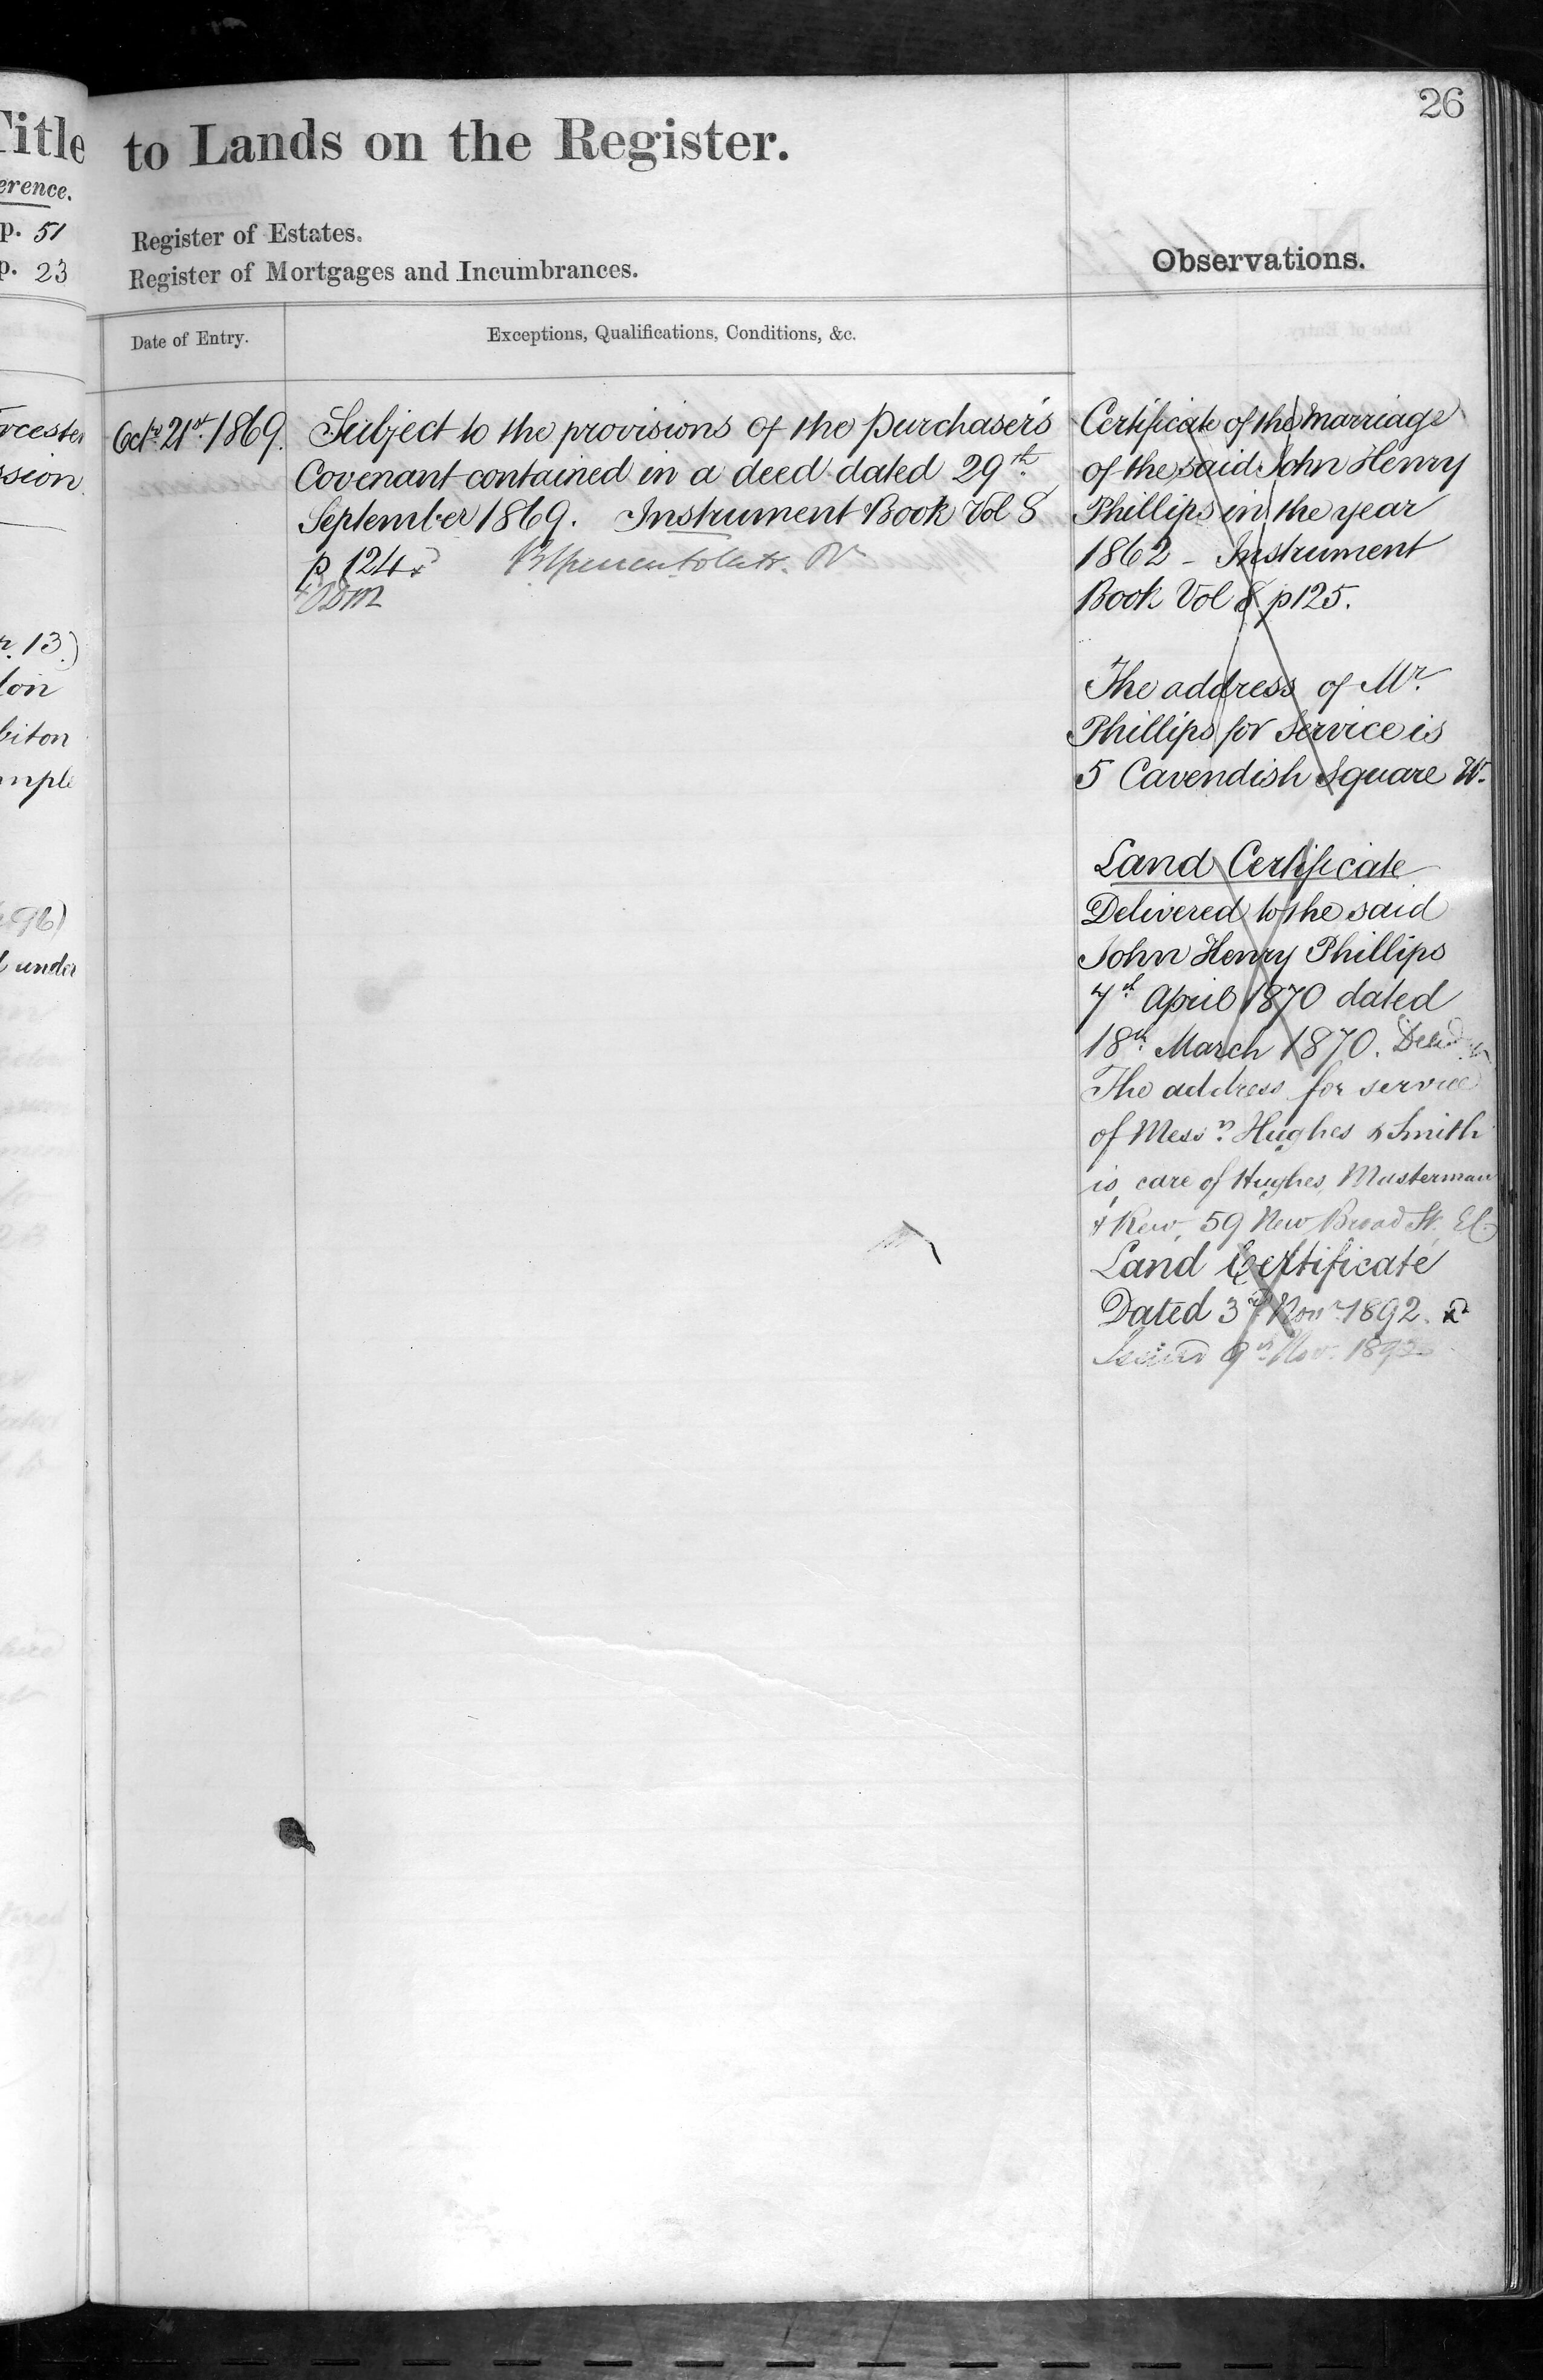 26
Title to Lands on the Register.
erence.
p. 51 Register of Estates.
p. 23 Register of Mortgages and Incumbrances.
Observations.
Date of Entry.
Exceptions, Qualifications, Conditions, &c.
rcester
ssion
r. 13.)
ton
biton
mple
96)
under
Octr. 21st. 1869.
Subject to the provisions of the purchaser's
Covenant contained in a deed dated 29th.
September 1869. Instrument Book Vol 8
p 124
Certificate of the marriage
of the said John Henry
Phillips in the year
1862 - Instrument
Book Vol 8 p 125.
The address of Mr.
Phillips for service is
5 Cavendish Square W.
Land Certificate
Delivered to the said
John Henry Phillips
7th. April 1870 dated
18th. March 1870.
The address for service
of Messrs. Hughes & Smith
is care of Hughes, Masterman
& Rew, 59 New Broad St. E.C.
Land Certificate
Dated 3rd. Novr. 1892.
Issued 9th. Nov. 1892